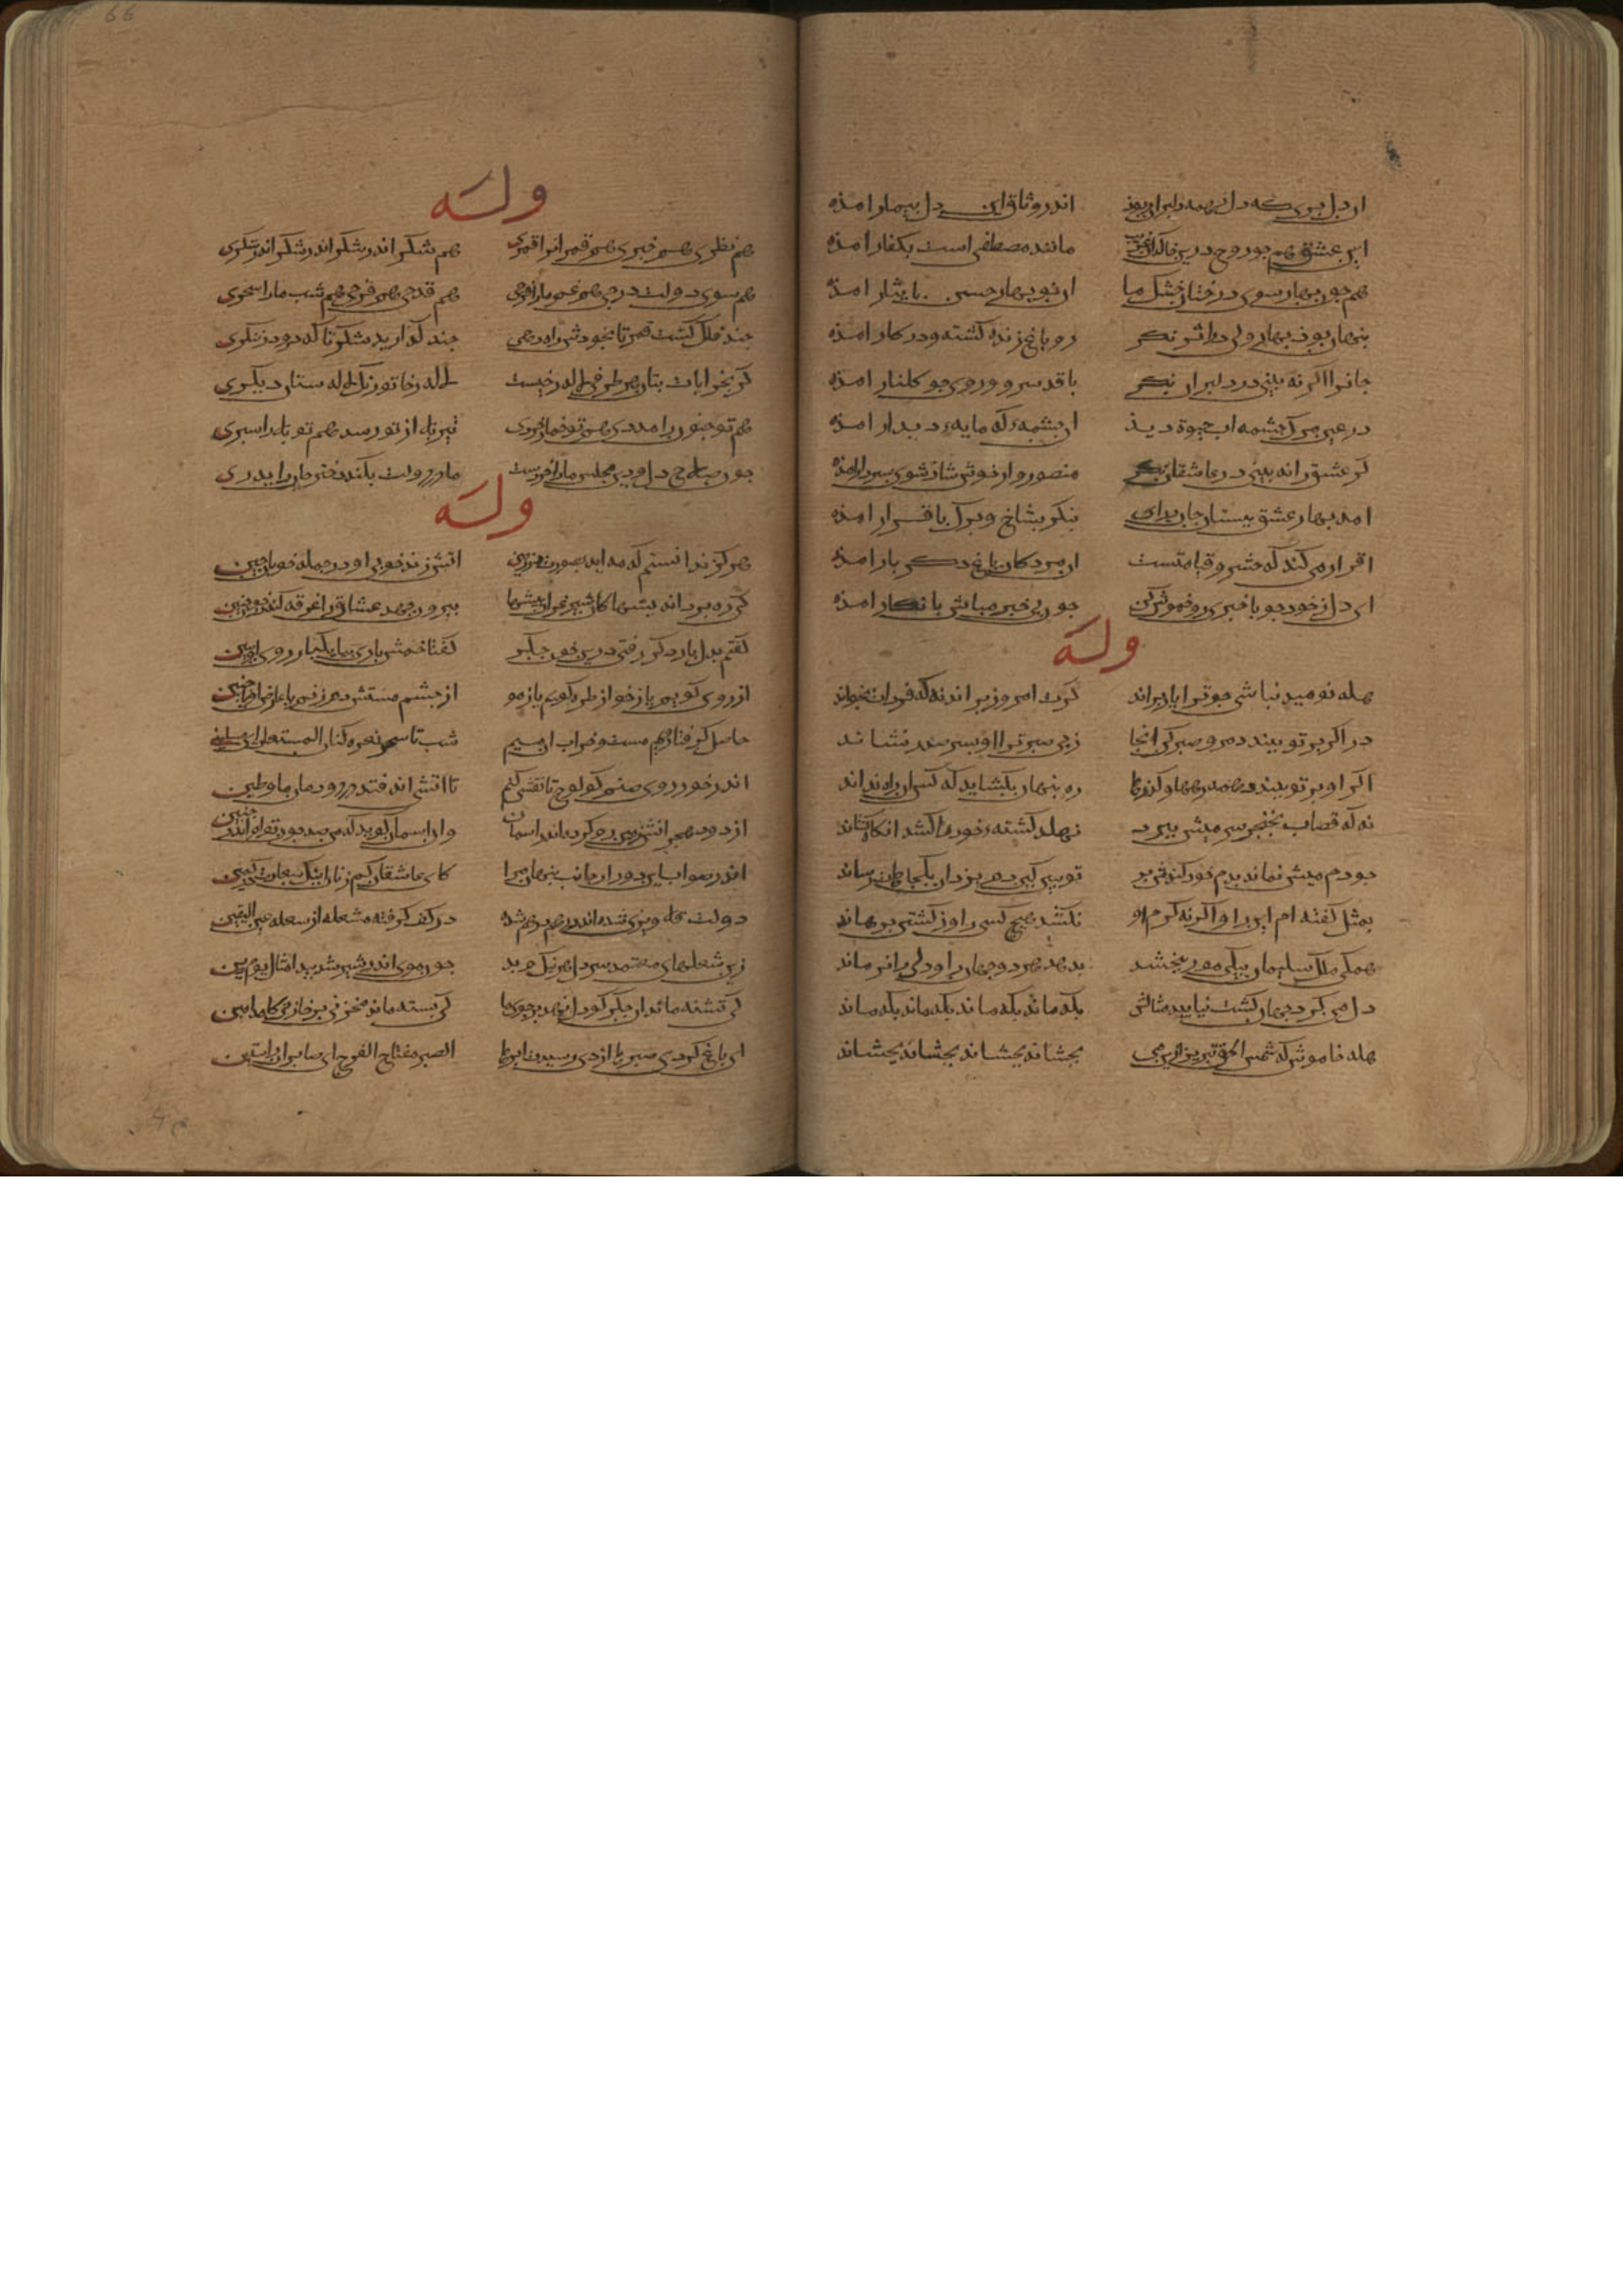 ان دل بری که دل ز همه دلبران ربوذ اندر وثاق این دل بیمار امذه
این عشق هم جو روح درین خاکدان غریب مانند مصطفی است بکفار امذه
هم جون بهار سوی درختان خشک ما ان نو بهار حسن بایثار امذه
بنهان بوذ بهار ولی در اثر نکر زو باغ زنده کشته و در کار امذه
جانرا اکر نه بینی در دلبران نکر با قد سرو و روی جو کلنار امذه
در عین مرک جشمه اب حیوة دید ان جشمهٔ که مایهٔ دیدار امذه
کر عشق را نه بینی در عاشقان نکر منصور وار خوش شاذ سوی دار امذه
امد بهار عشق ببستان جان درای بنکر بشاخ و برک باقرار امذه
اقرار می کند که حشر و قیامتست ان مردکان باغ دکر بار امذه
ای دل ز خود جو با خبری رو خموش کن جون بی خبر مباش باخبار امذه
وله
هله نومید نباشی جو ترا یار براند کرت امروز براند نه که فردات بخواند
در اکر بر تو ببندد مرو و صبر کن انجا ز پی صبر ترا او بسر صدر نشاند
اکر او بر تو ببندد همه رهها و کذرها ره بنهان بکشاید که کس ان راه نداند
نه که قصاب بخنجر سر میش ببرد نهلد کشتهٔ خود را کشد انکاه کشاند
جو دم میش نماند بدم خود کندش بر تو ببین کین دم یزدان بکجاهات رساند
بمثل کفته ام این را و اکر نه کرم او نکشد هیج کسی را و ز کشتن برهاند
همکی ملک سلیمان بیکی مور ببخشد بدهد هر دو جهان را و دلی را نرماند
دل من کرد جهان کشت نیابید مثالش بکه ماند بکه ماند بکه ماند بکه ماند
هله خاموش که شمس الحق تبریز ازین می بجشاند بجشاند بجشاند بجشاند
وله
هم نظری هم خبری هم قمرانرا قمری هم شکر اندر شکر اندر شکر اندر شکری
هم سوی دولت درجی هم غم ما را فرجی هم قدحی هم فرحی هم شب ما را سحری
جند فلک کشت قمر تا بخودش راه دهی جند کذارید شکر تا که درو درنکری
کر بخرابات بتان هر طرفی لاله رخیست لاله رخا تو ز یک لاله ستان دیکری
هم تو جنون را مددی هم تو جمال خردی تیر بلا از تو رسد هم تو بلا را سبری
جون صلاح دل و دین مجلس ما راخر نیست مادر دولت بکند دختر جان را بدری
وله
هرکز ندانستم که مه اید بصورت بر زمین اتش زند خوبی او در جمله خوبان جنین
کی ره برد اندیشها کان شیر نر زان بیشها بیرون جهد عشاق را غرقه کند در خون جنین
کفتم بدل بار دکر رفتی درین خون جکر کفتا خمش باری بیا یکبار روی او ببین
از روی کویم یاز خو از طره کویم یاز مو از جشم مستش دم زنم یا عارض او یا جبین
حاصل کرفتار ویم مست و خراب ان میم شب تا سحر نعره زنان المستغاث ای مسلمین
اندر خور روی صنم کو لوح تا نقشی کنم تا اتشی اندر فتد در دودمان ما و طین
از دود هجر اتشش سیه کردید ماند اسمان وان اسمان کوید که من صد جون توام اندر جنین
اندر صوابایی بدور از جانب بنهان مرا کای عاشقان کم زنان اینک سعادت در کمین
دولت قلاوزی شده اندر ره در هم شده در کف کرفته مشعله از شعله عین الیقین
زین شعلهای معتمد سر دل هر نیک و بد جون موی اندر شیر شد بیدا مثال یوم دین
کی تشنه ماند ان جکر کو دل نهد بر جوی ما کی بسته ماند مخزنی بر خازنی کامد امین
ای باغ کردی صبرها از دی رسیدت ابرها الصبر مفتاح الفرج ای صابران راستین